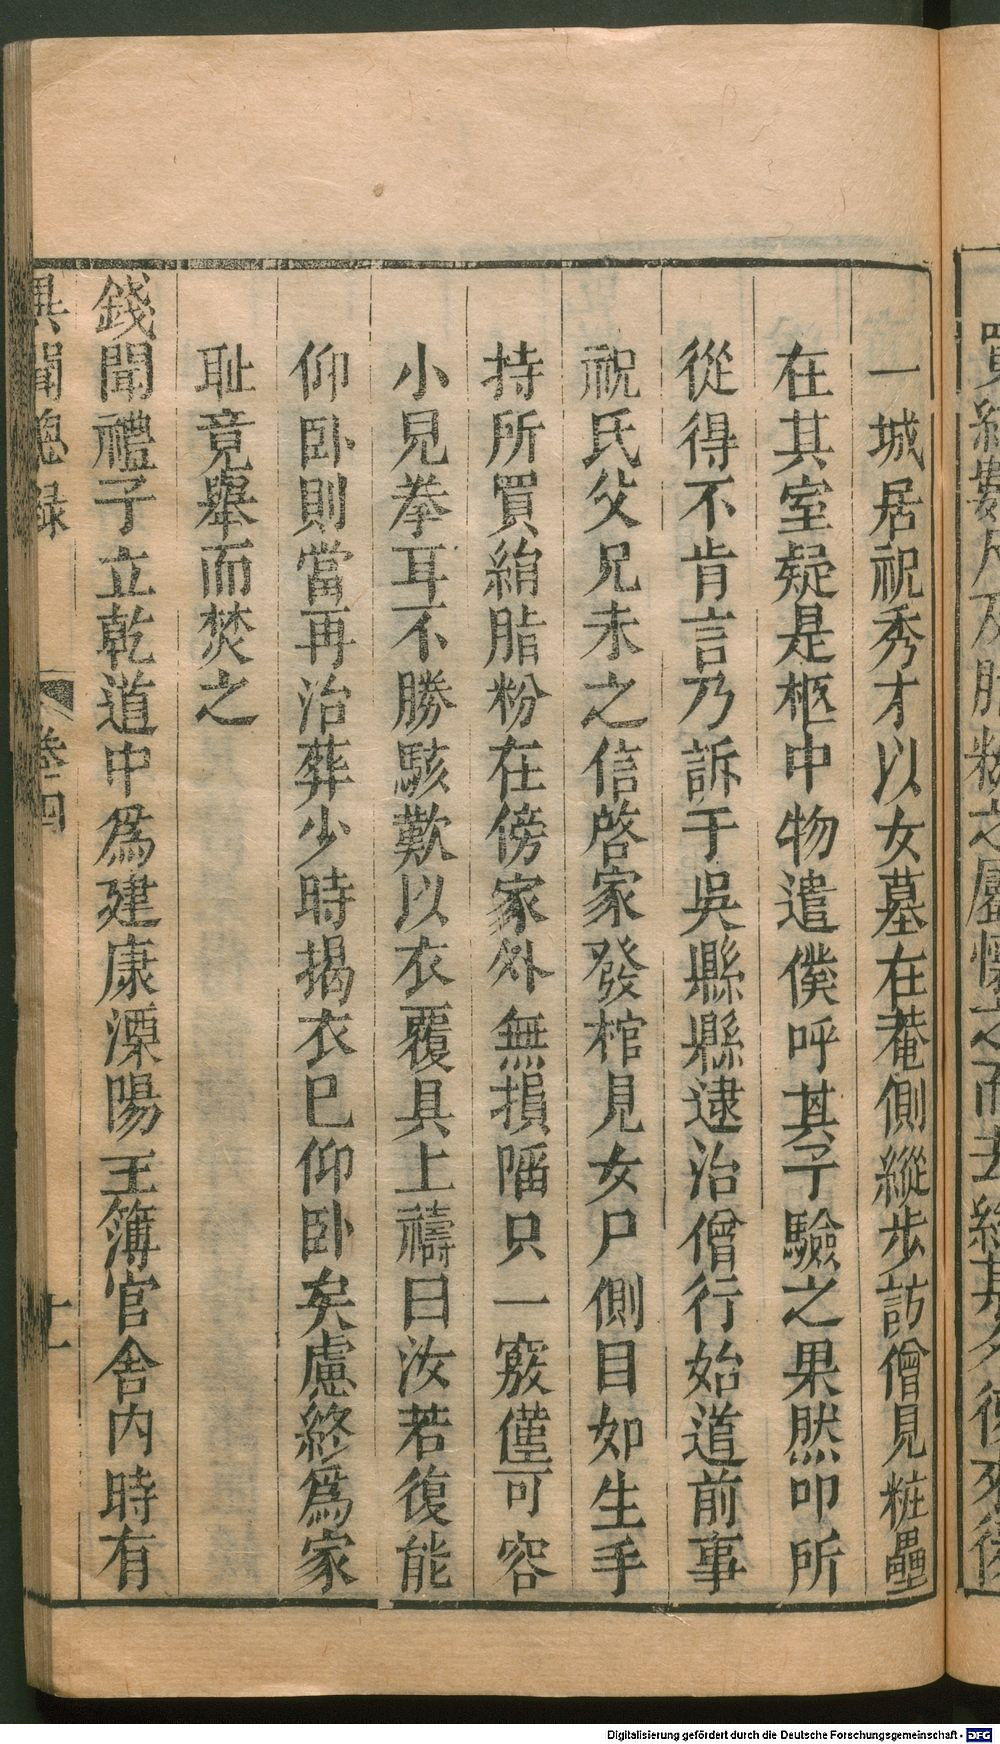 一城居祝秀才以女墓在菴側縱步訪僧見粧壘
在其室疑是柩中物遣僕呼其子驗之果然叩所
從得不肯言乃訴于吳縣縣逮治僧行始道前事
祝氏父兄未之信啓冢發棺見女尸側目如生手
持所買絹脂粉在傍冢外無損陷只一竅僅可容
小兒拳耳不勝駭歎以衣覆具上禱曰汝若復能
仰卧則當再治葬少時揭衣巳仰卧矣慮終爲家
耻竟舉而焚之
錢聞禮子立乾道中爲建康溧陽王簿官舍內時有
異聞總録 卷四 十一
Digitalisierung gefördert durch die Deutsche Forschungsgemeinschaft - DFG